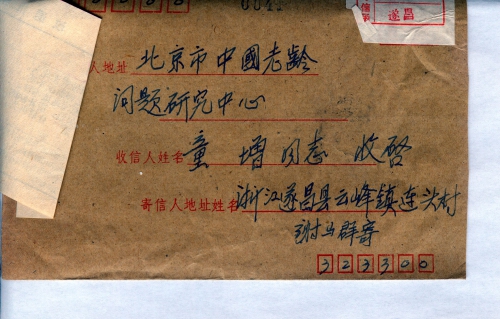 遂昌
人地址 北京市中國老龄
问题研究中心
收信人姓名 童增同志 收启
寄信人地址姓名 浙江遂昌县云峰镇连头村
谢马群寄
323300